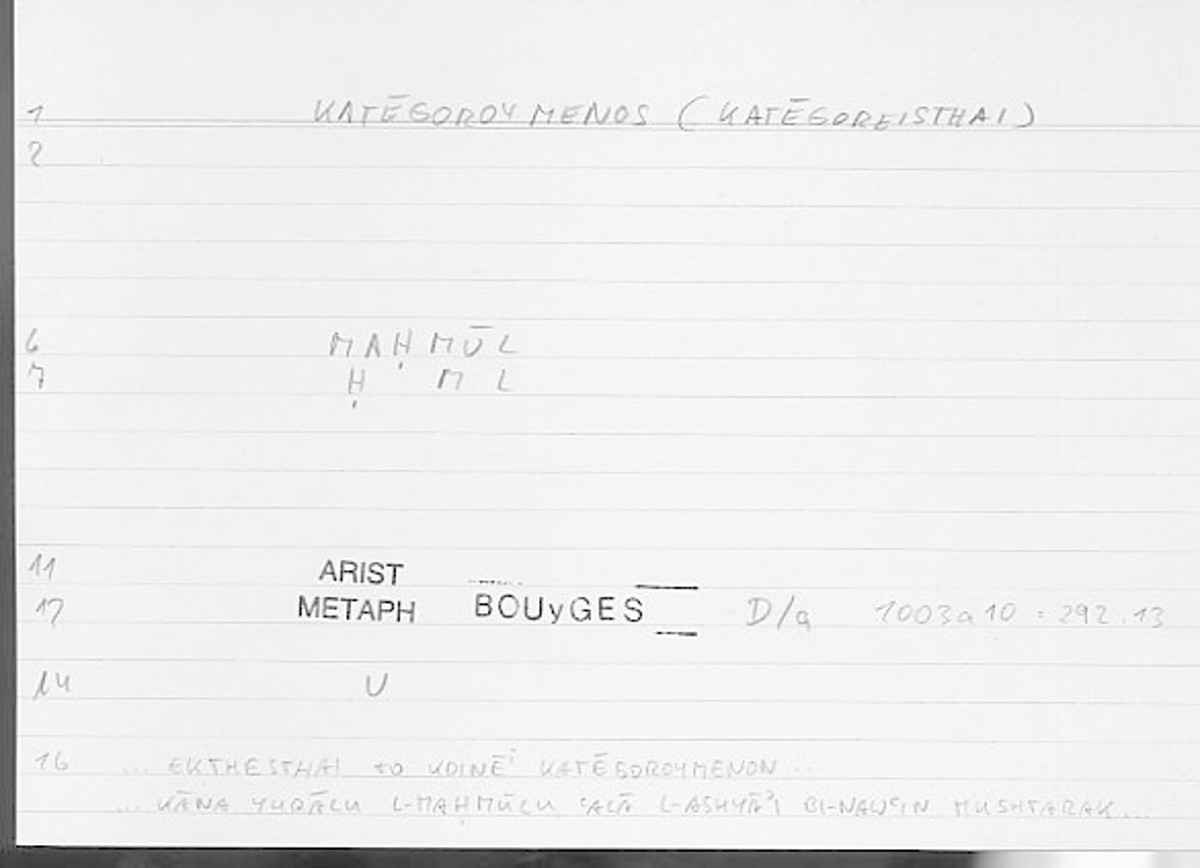 1 KATĒGOROYMENOS (KATĒGOREISTHAI)
2
6 MAḤMŪL
7 Ḥ M L
11 ARIST
12 METAPH BOUyGES D/a 1003a10 = 292.13
14 U
16 ... EKTHESTHAI TO KOINĒ' KATĒGOROYMENON ...
... KĀNA YUQĀLU L-MAḤMŪLU ʿALĀ L-ASHYĀʾI BI-NAWʿIN MUSHTARAK...